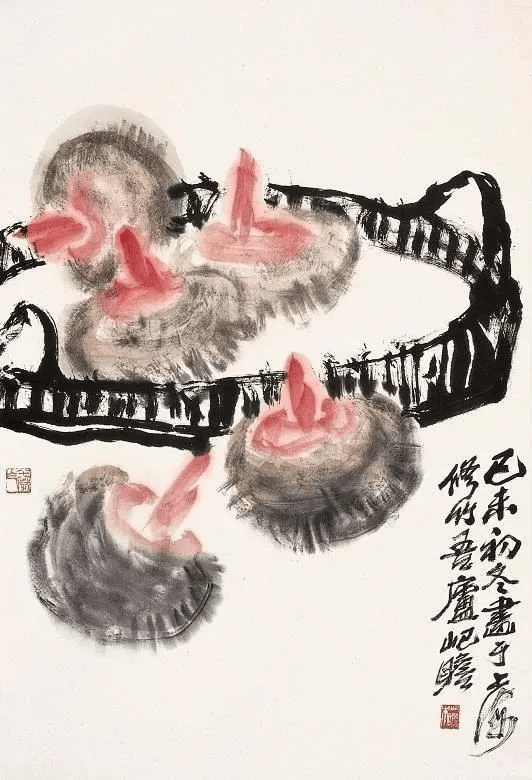 己未初冬畫于上海
修竹吾廬屺瞻